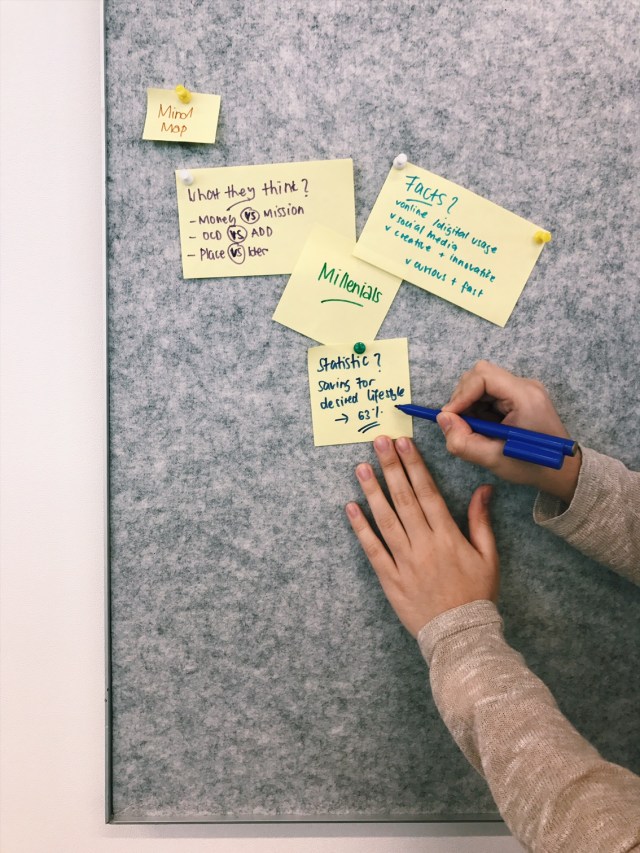 Mind
Map
What they think?
- Money VS Mission
- OCD VS ADD
- Place VS
Facts?
v online /digital usage
v social media
v creative + innovative
v curious + fast
Millenials
Statistic?
Saving for
desired lifestyle
→ 63%